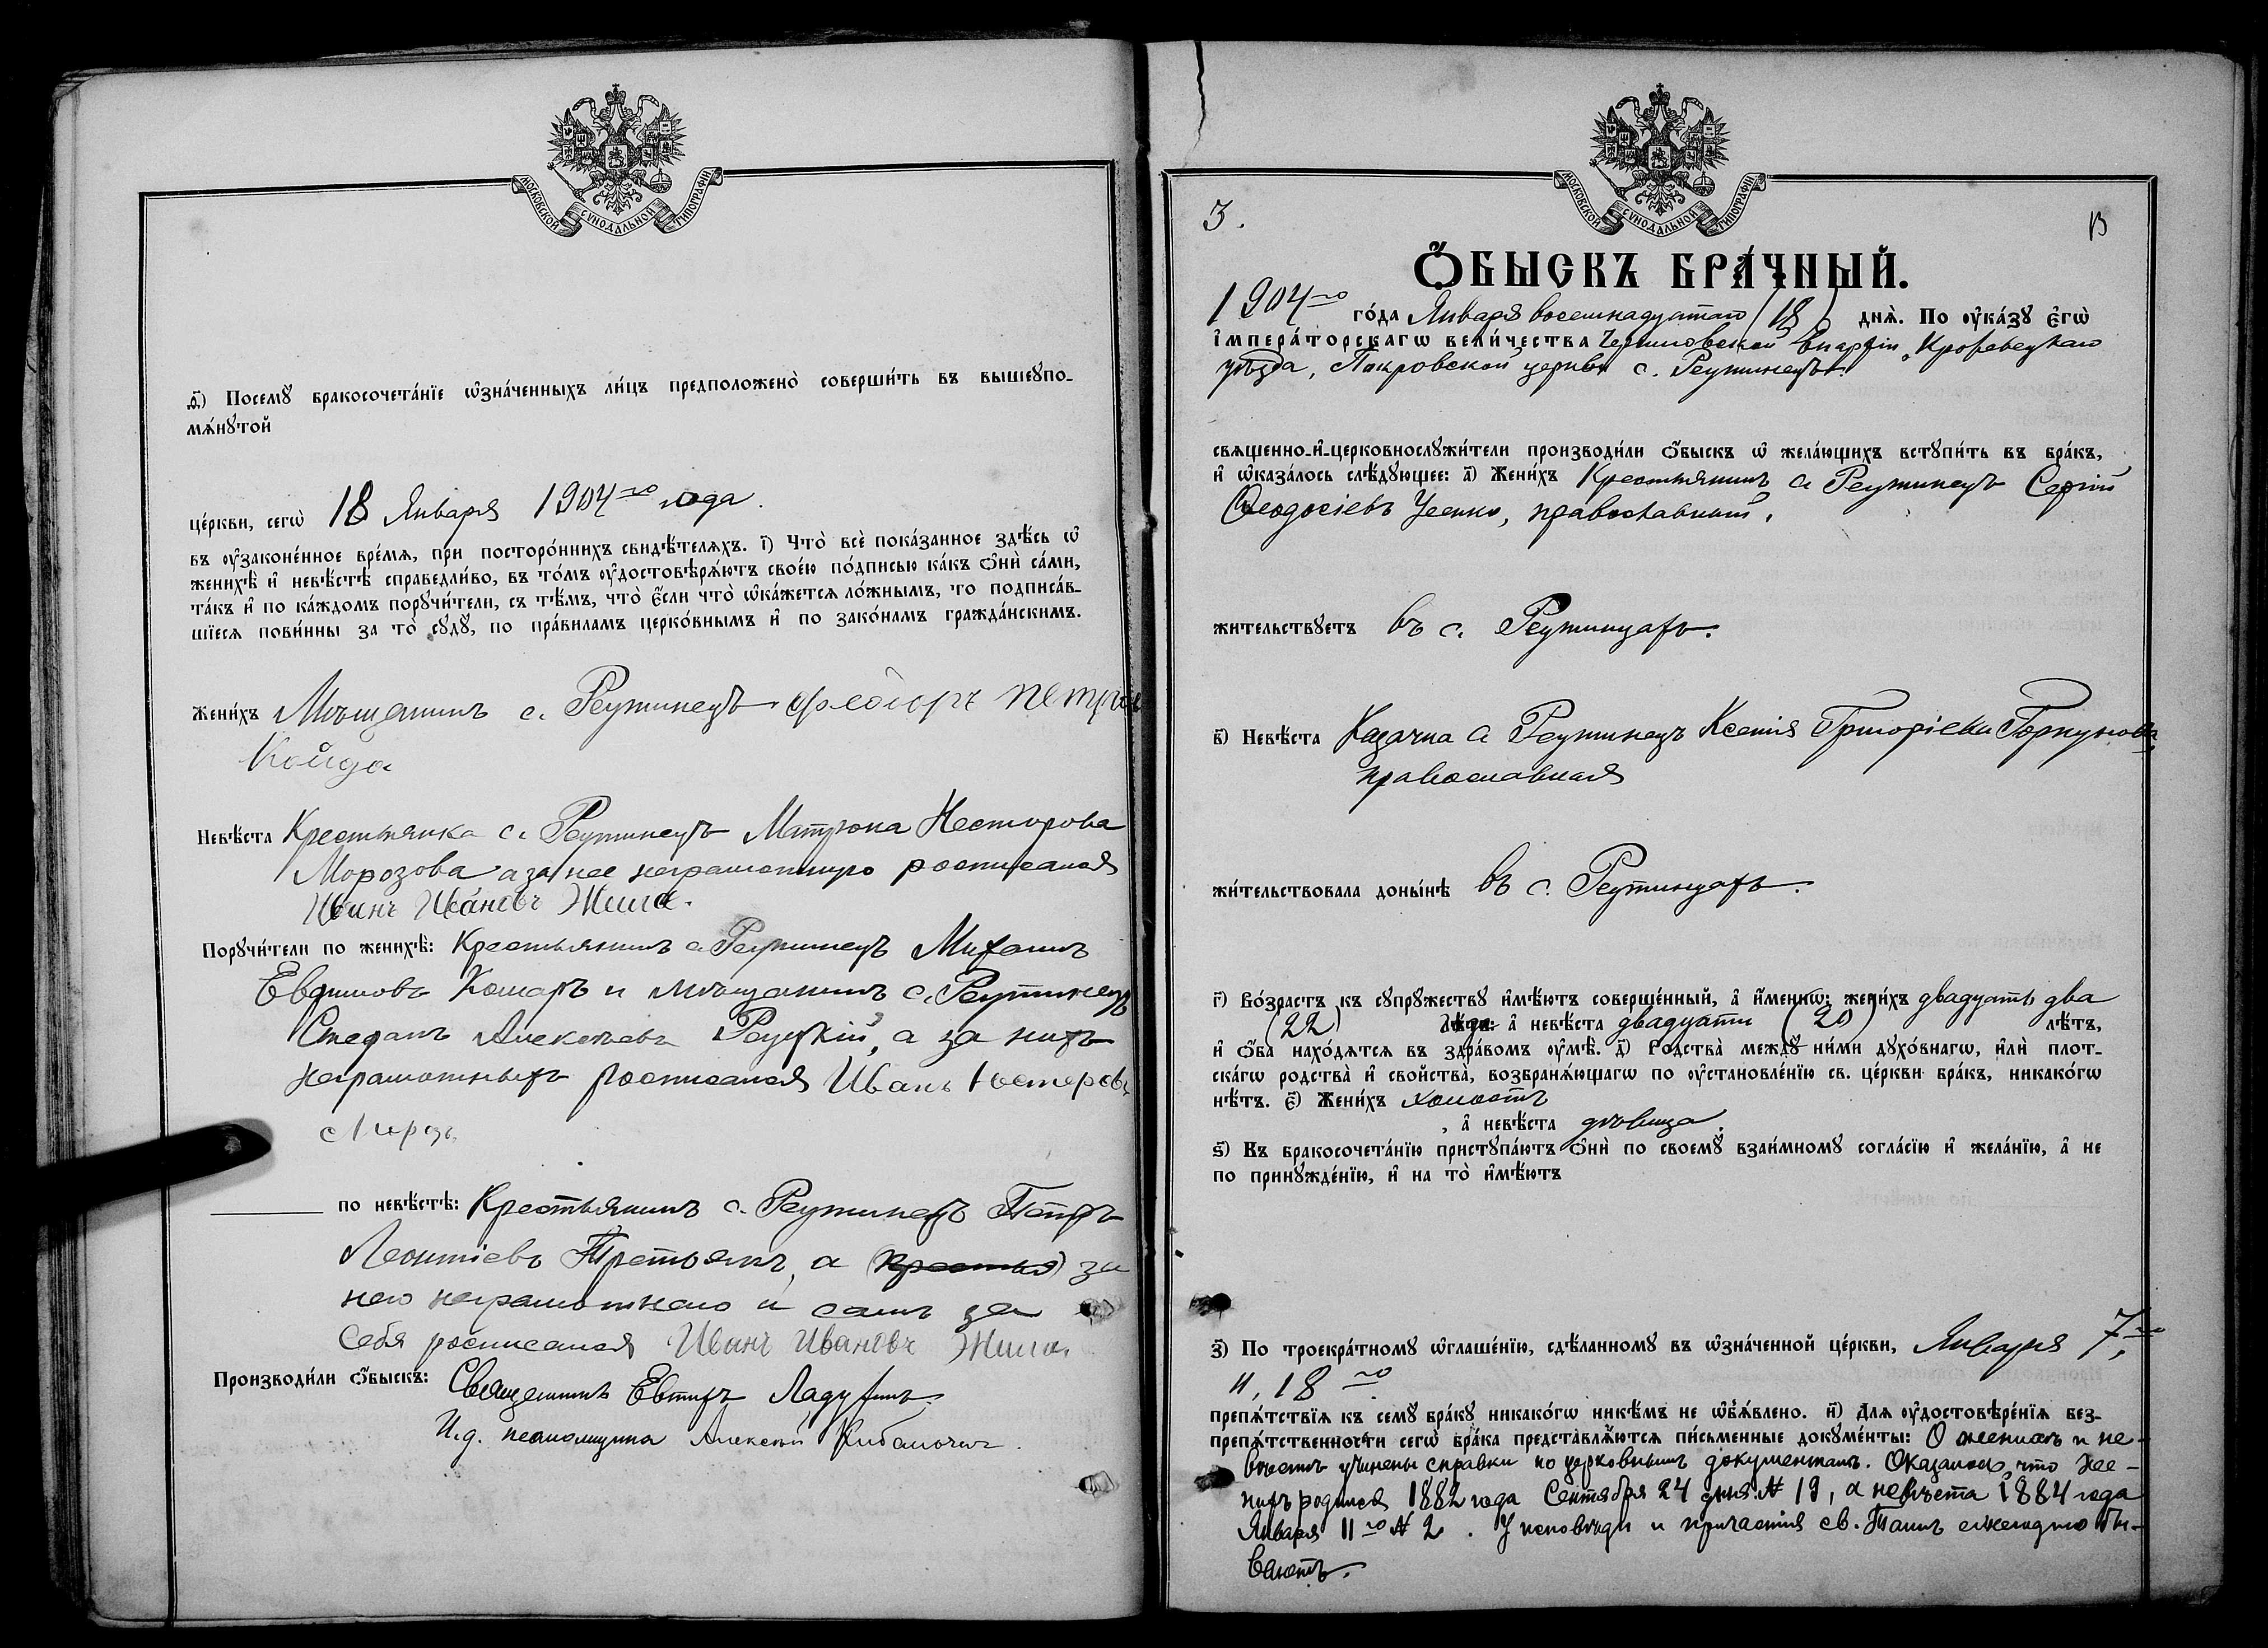 МОСКОВСКОЙ СѴНОДАЛЬНОЙ ТИПОГРАФІИ
д҃і) Посемꙋ бракосочета́нїе ѡзна́ченныхъ ли́цъ предположено̀ соверши́ть въ вышеꙋпо-
мѧ́нꙋтой
це́ркви, сегѡ̀ 18 Января 1904го года.
въ ᲂу҆законе́нное вре́мѧ, при посторо́ннихъ свидѣ́телѧхъ. і҃) Что̀ всѐ пока́занное здѣ́сь ѡ҆
женихѣ̀ и҆ невѣ́стѣ справедли́во, въ то́мъ ᲂу҆достовѣрѧ́ютъ свое́ю по́дписью ка́къ ѻ҆нѝ са́ми,
та́къ и҆ по ка́ждомъ порꙋчи́тели, съ тѣ́мъ, что̀ є҆́сли что̀ ѡ҆ка́жетсѧ ло́жнымъ, то подписа́в-
шїесѧ пови́нны за то̀ сꙋдꙋ̀, по пра́виламъ церко́внымъ и҆ по зако́намъ гражда́нскимъ.
Жени́хъ Мѣщанинъ с. Реутинецъ Феодоръ Петровъ
Койда
Невѣ́ста Крестьянка с. Реутинецъ Матрона Несторова
Морозова а за нее неграмотную росписался
Иванъ Ивановъ Жила.
Порꙋчи́тели по женихѣ̀: Крестьянинъ с Реутинецъ Михаилъ
Евфимовъ Комаръ и мѣщанинъ с. Реутинецъ
Стефанъ Алексѣевъ Реуцкій, а за нихъ
неграмотныхъ росписался Иванъ Нестеровъ
Морозъ
по невѣ́стѣ: Крестьянинъ с. Реутинецъ Петръ
Леонтіевъ Третьякъ, а (крестья) за
него неграмотнаго и самъ за
себя росписался Иванъ Ивановъ Жила
Производи́ли ѻ҆́быскъ: Священникъ Евтихъ Ладухинъ.
И.д. псаломщика Алексей Кибальчичъ.
МОСКОВСКОЙ СѴНОДАЛЬНОЙ ТИПОГРАФІИ
3. 13
Ѻ҆́БЫСКЪ БРА́ЧНЫЙ.
1904го го́да Января восемнадцатаго (18) днѧ̀. По ᲂу҆ка́зꙋ є҆гѡ̀
і҆мпера́торскагѡ вели́чества Черниговской Епархіи, Кролевецкаго
уѣзда, Покровской церкви с. Реутинецъ
свѧщенно-и҆-церковнослꙋжи́тели производи́ли ѻ҆́быскъ ѡ҆ жела́ющихъ встꙋпи́ть въ бра́къ,
и҆ ѡ҆каза́лось слѣ́дꙋющее: а҃) Жени́хъ Крестьянинъ с Реутинецъ Сергій
Ѳеодосіевъ Усенко, православный.
жи́тельствꙋетъ въ с. Реутинцахъ.
в҃) Невѣ́ста Казачка с Реутинецъ Ксенія Григоріева Горкунова
православная
жи́тельствовала доны́нѣ въ с. Реутинцахъ.
г҃) Во́зрастъ къ сꙋпрꙋ́жествꙋ и҆мѣ́ютъ соверше́нный, а҆ и҆́меннѡ: жени́хъ двадцать два
(22) года а҆ невѣ́ста двадцати (20) лѣ́тъ,
и҆ ѻ҆́ба нахо́дѧтсѧ въ здра́вомъ ᲂу҆мѣ̀. д҃) Родства̀ междꙋ̀ ни́ми дꙋхо́внагѡ, и҆лѝ плот-
ска́гѡ родства̀ и҆ сво́йства̀, возбранѧ́ющагѡ по ᲂу҆становле́нїю св. це́ркви бра́къ, никако́гѡ
нѣ́тъ. є҃) Жени́хъ холостъ
, а҆ невѣ́ста дѣвица.
ѕ҃) Къ бракосочета́нїю пристꙋпа́ютъ ѻ҆нѝ по своемꙋ̀ взаи́мномꙋ согла́сїю и҆ жела́нїю, а҆ не
по принꙋжде́нїю, и҆ на то̀ и҆мѣ́ютъ
з҃) По троекра́тномꙋ ѡ҆глаше́нїю, сдѣ́ланномꙋ въ ѡ҆зна́ченной це́ркви, Января 7го,
11, 18го
препѧ́тствїѧ къ семꙋ̀ бра́кꙋ никако́гѡ никѣ́мъ не ѡ҆б̾ѧ́влено. и҃) Длѧ ᲂу҆достовѣре́нїѧ без-
препѧ́тственности сегѡ̀ бра́ка представлѧ́ютсѧ пи́сьменные докꙋме́нты: О женихѣ и не-
вѣстѣ учинены справки по церковнымъ документамъ. Оказалось, что же-
нихъ родился 1882 года Сентября 24 дня № 19, а невѣста 1884 года
Января 11го № 2. У исповѣди и причастія св. Таинъ ежегодно бы-
ваютъ.